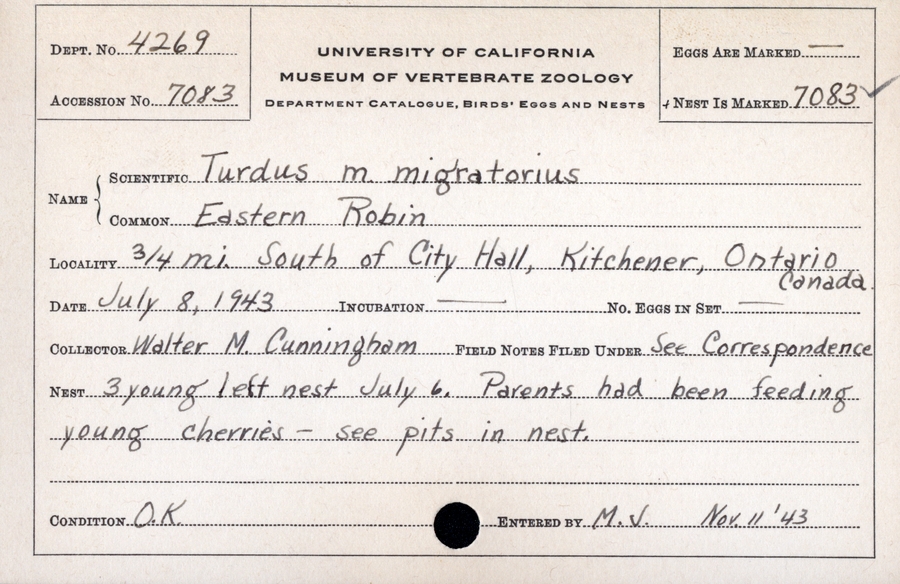 DEPT. NO. 4269
ACCESSION NO. 7083
UNIVERSITY OF CALIFORNIA
MUSEUM OF VERTEBRATE ZOOLOGY
DEPARTMENT CATALOGUE, BIRDS' EGGS AND NESTS
EGGS ARE MARKED —
NEST IS MARKED 7083 ✓
NAME
SCIENTIFIC Turdus m. migratorius
COMMON Eastern Robin
LOCALITY 3/4 mi. South of City Hall, Kitchener, Ontario
Canada.
DATE July 8, 1943 INCUBATION — NO. EGGS IN SET —
COLLECTOR Walter M. Cunningham FIELD NOTES FILED UNDER See Correspondence
NEST 3 young left nest July 6. Parents had been feeding
young cherries – see pits in nest.
CONDITION O.K. ENTERED BY M.J. Nov. 11 '43